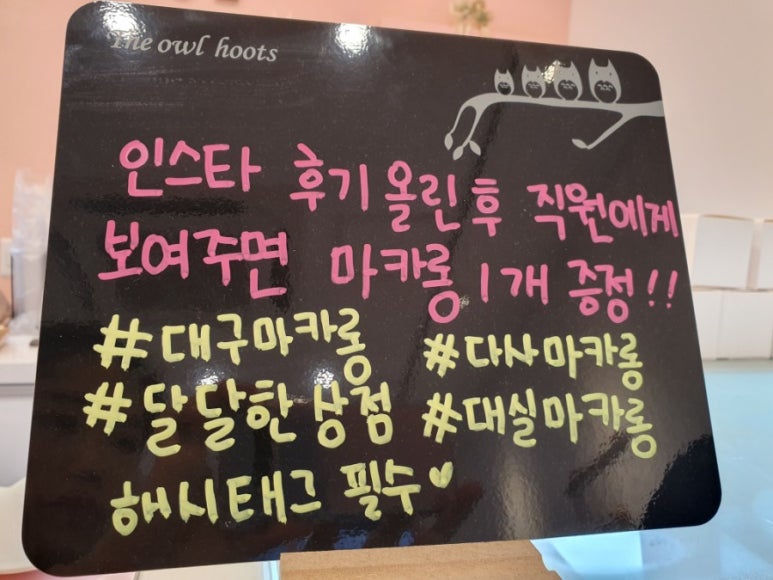 The owl hoots
인스타 후기 올린 후 직원에게
보여주면 마카롱 1개 증정!!
#대구마카롱 #다사마카롱
#달달한상점 #대실마카롱
해시태그 필수♥